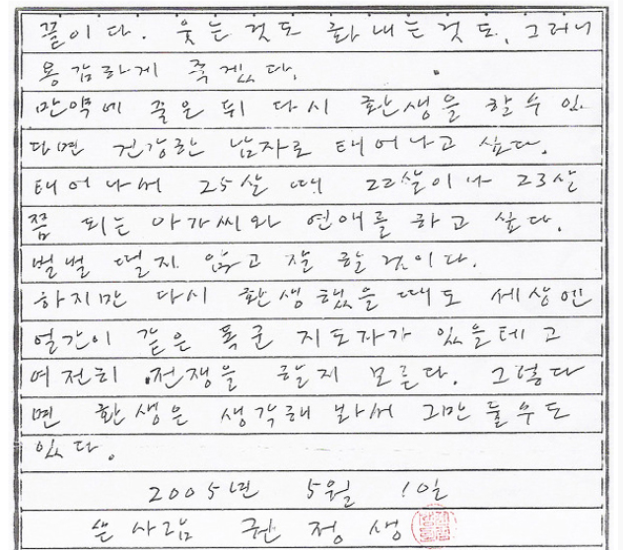 끝이다. 웃는 것도 화내는 것도. 그러니
용감하게 죽겠다.
만약에 죽은 뒤 다시 환생을 할 수 있
다면 건강한 남자로 태어나고 싶다.
태어나서 25살 때 22살이나 23살
쯤 되는 아가씨와 연애를 하고 싶다.
벌벌 떨지 않고 잘 할 것이다.
하지만 다시 환생했을 때도 세상엔
얼간이 같은 폭군 지도자가 있을테고
여전히 전쟁을 할지 모른다. 그렇다
면 환생은 생각해 봐서 그만 둘 수도
있다.
2005년 5월 1일
쓴 사람 권정생